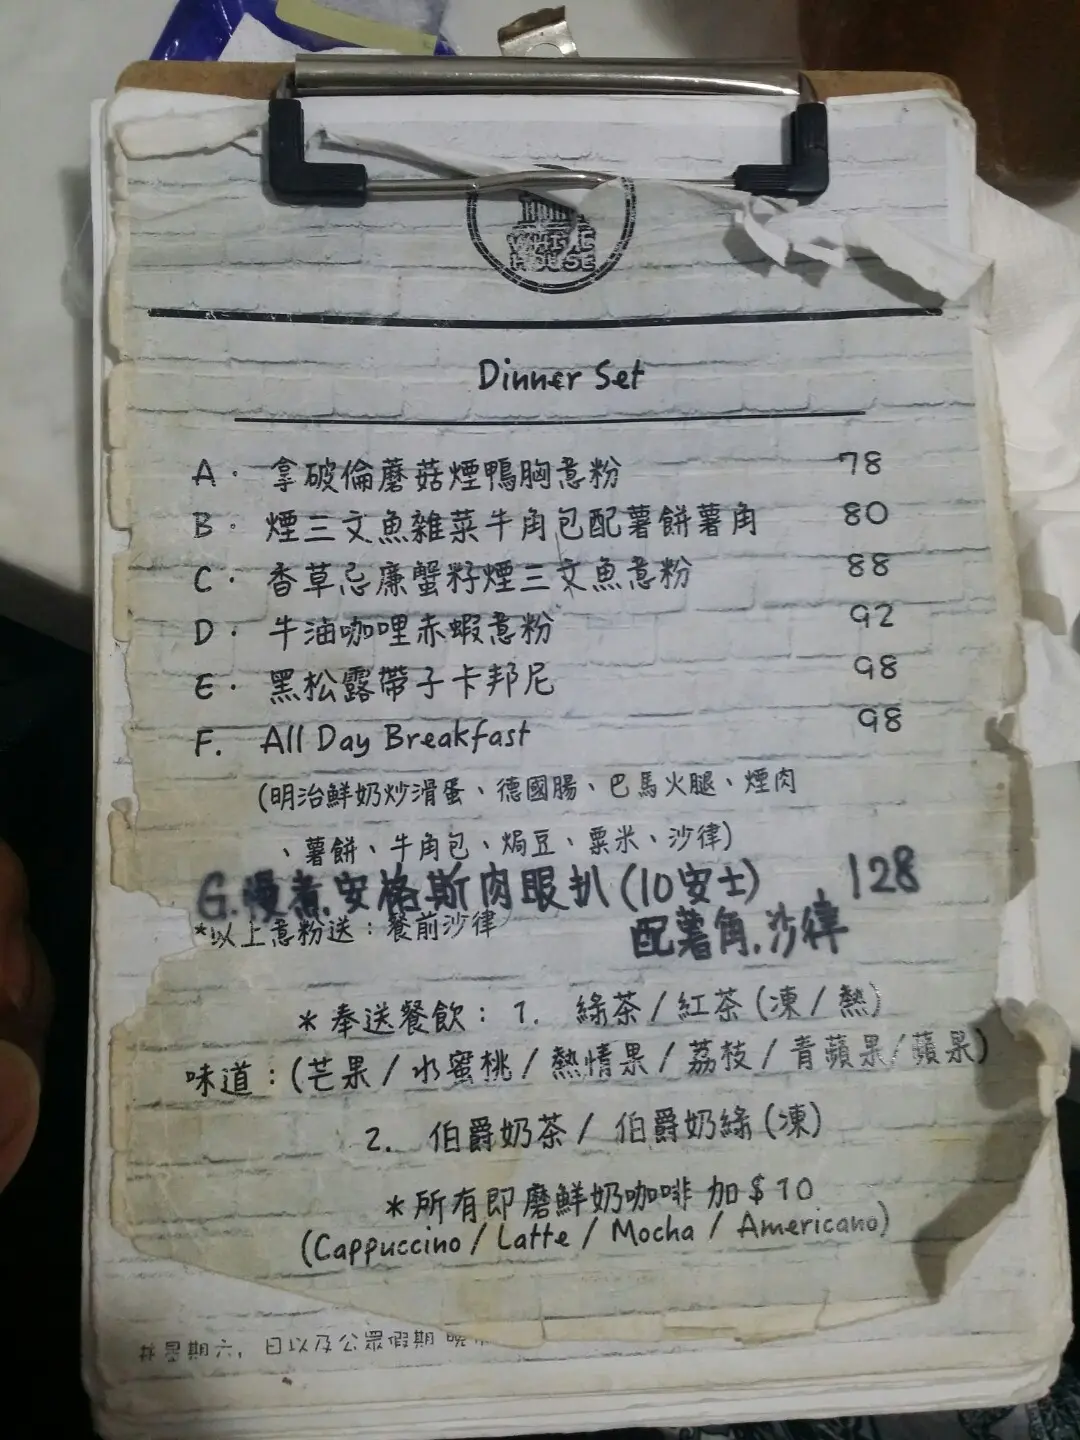 WHITE
HOUSE
Dinner Set
A. 拿破倫蘑菇煙鴨胸意粉 78
B. 煙三文魚雜菜牛角包配薯餅薯角 80
C. 香草忌廉蟹籽煙三文魚意粉 88
D. 牛油咖哩赤蝦意粉 92
E. 黑松露帶子卡邦尼 98
F. All Day Breakfast 98
(明治鮮奶炒滑蛋、德國腸、巴馬火腿、煙肉
、薯餅、牛角包、焗豆、粟米、沙律)
G.慢煮.安格斯肉眼扒(10安士) 128
配薯角.沙律
*以上意粉送：餐前沙律
*奉送餐飲：1. 綠茶/紅茶(凍/熱)
味道：(芒果/水蜜桃/熱情果/荔枝/青蘋果/蘋果)
2. 伯爵奶茶/伯爵奶綠(凍)
*所有即磨鮮奶咖啡加$10
(Cappuccino/Latte/Mocha/Americano)
#星期六，日以及公眾假期 晚